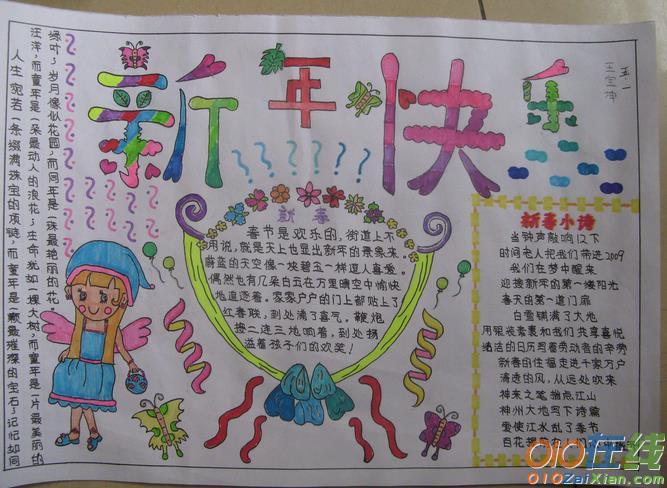 新年快乐
五.一
人生宛若一条缀满珠宝的项链，而童年是一颗最璀璨的宝石；记忆如同
汪洋，而童年是一朵最动人的浪花；生命犹如一棵大树，而童年是一片最美丽的
绿叶；岁月像似花园，而同年是一珠最艳丽的花
新春
春节是欢乐的，街道上不
用说，就是天上也显出新年的景象来。
蔚蓝的天空像一块碧玉一样逗人喜爱。
偶然也有几朵白云在万里晴空中愉快
地追逐着。家家户户的门上都贴上了
红春联，到处涌了喜气。鞭炮
接二连三地响着，到处扬
溢着孩子们的欢笑！
新春小诗
当钟声敲响12下
时间老人把我们带进2009
我们在梦中醒来
迎接新年的第一缕阳光
春天的第一道门扉
白雪铺满了大地
用银装素裹和我们共享喜悦
皓洁的日历写着劳动者的辛劳
新春的祝福走进千家万户
清透的风，从远处吹来
神来之笔指点江山
神州大地写下诗篇
爱使江水乱了季节
百花
010在线
010ZaiXian.com